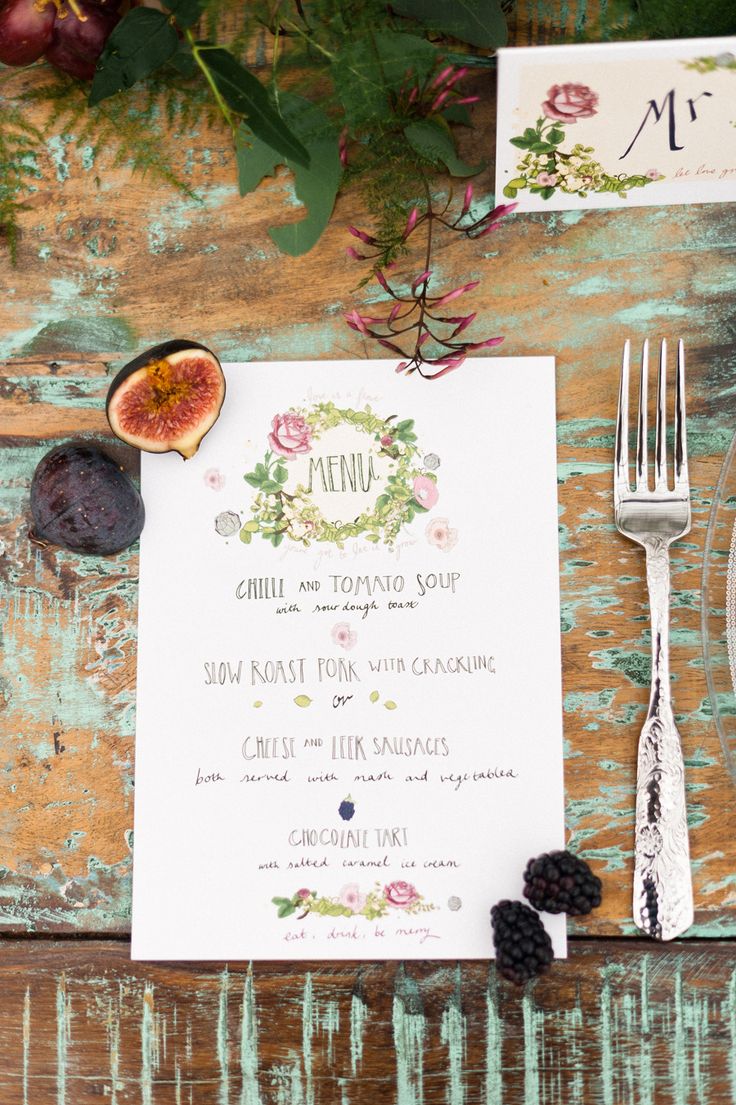 Mr
let love gro
love is a flower
MENU
you've got to let it grow
CHILLI AND TOMATO SOUP
with sour dough toast
SLOW ROAST PORK WITH CRACKLING
or
CHEESE AND LEEK SAUSAGES
both served with mash and vegetables
CHOCOLATE TART
with salted caramel ice cream
eat, drink, be merry